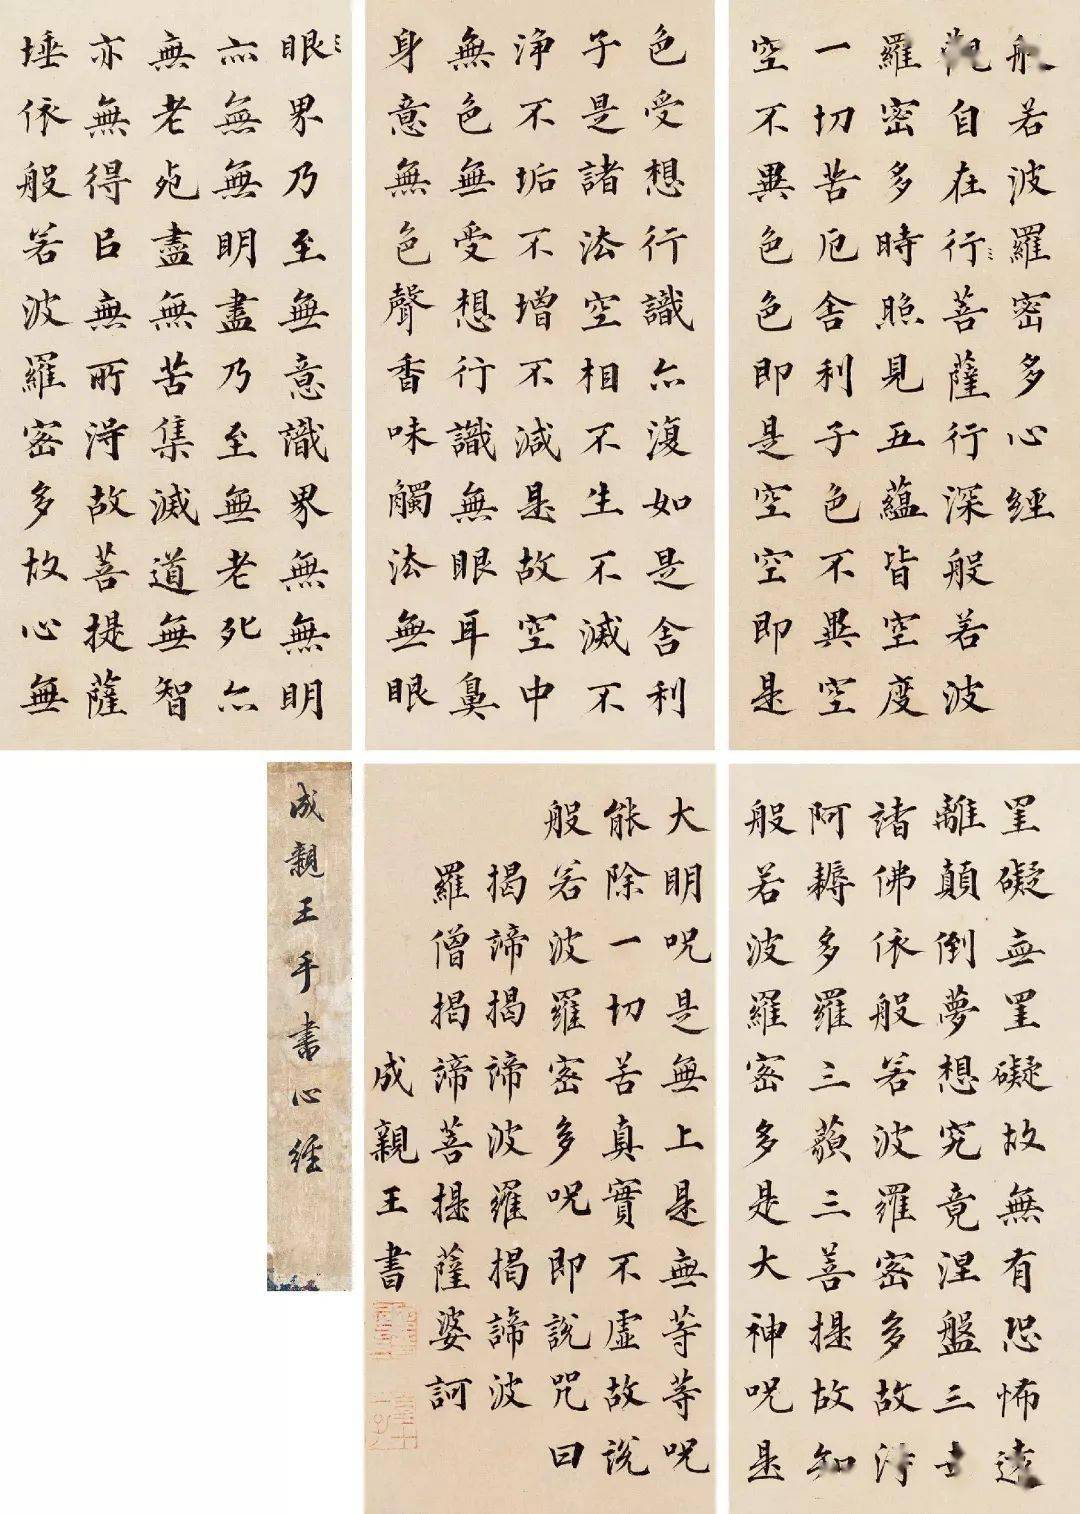 般若波羅密多心經
觀自在行菩薩行深般若波
羅密多時照見五蘊皆空度
一切苦厄舍利子色不異空
空不異色色即是空空即是
色受想行識亦復如是舍利
子是諸法空相不生不滅不
淨不垢不增不減是故空中
無色無受想行識無眼耳鼻
身意無色聲香味觸法無眼
眼界乃至無意識界無無明
亦無無明盡乃至無老死亦
無老死盡無苦集滅道無智
亦無得以無所得故菩提薩
埵依般若波羅密多故心無
罣礙無罣礙故無有恐怖遠
離顛倒夢想究竟涅盤三世
諸佛依般若波羅密多故得
阿耨多羅三藐三菩提故知
般若波羅密多是大神呪是
大明呪是無上是無等等呪
能除一切苦真實不虛故說
般若波羅密多呪即說咒曰
揭諦揭諦波羅揭諦波
羅僧揭諦菩提薩婆訶
成親王書
成親王手書心經